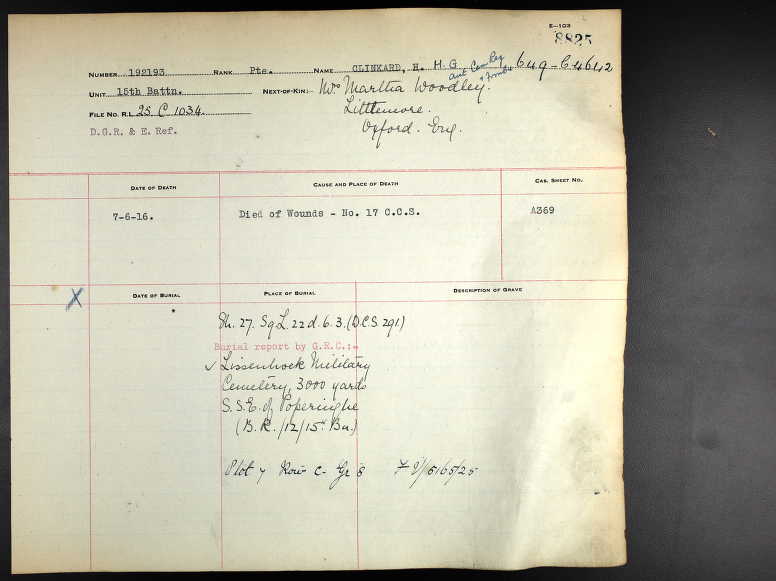 E-103
8825
NUMBER 192193 RANK Pte. NAME CLINKARD, H. H. G. 649-C-4642
UNIT 15th Battn. NEXT-OF-KIN:- Mrs Martha Woodley.
FILE No. R.L. 25. C. 1034. Littlemore.
D.G.R. & E. Ref. Oxford. Eng.
DATE OF DEATH CAUSE AND PLACE OF DEATH CAS. SHEET NO.
7-6-16. Died of Wounds - No. 17 C.C.S. A369
X DATE OF BURIAL PLACE OF BURIAL DESCRIPTION OF GRAVE
Sh. 27. Sq L. 22 d. 6. 3. (D.C.S. 291)
Burial report by G.R.C.:-
✓ Lissenhoek Military
Cemetery, 3000 yards
S.S.E. of Poperinghe
(B.R. /12/15th Bn.)
Plot 7 Row C- Gr 8